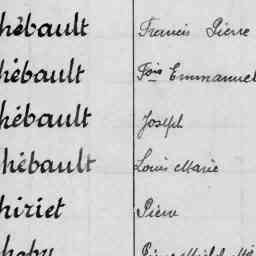 hébault Francis Pierre
hébault Fois Emmanuel
hébault Joseph
hébault Louis Marie
hiriet Pierre